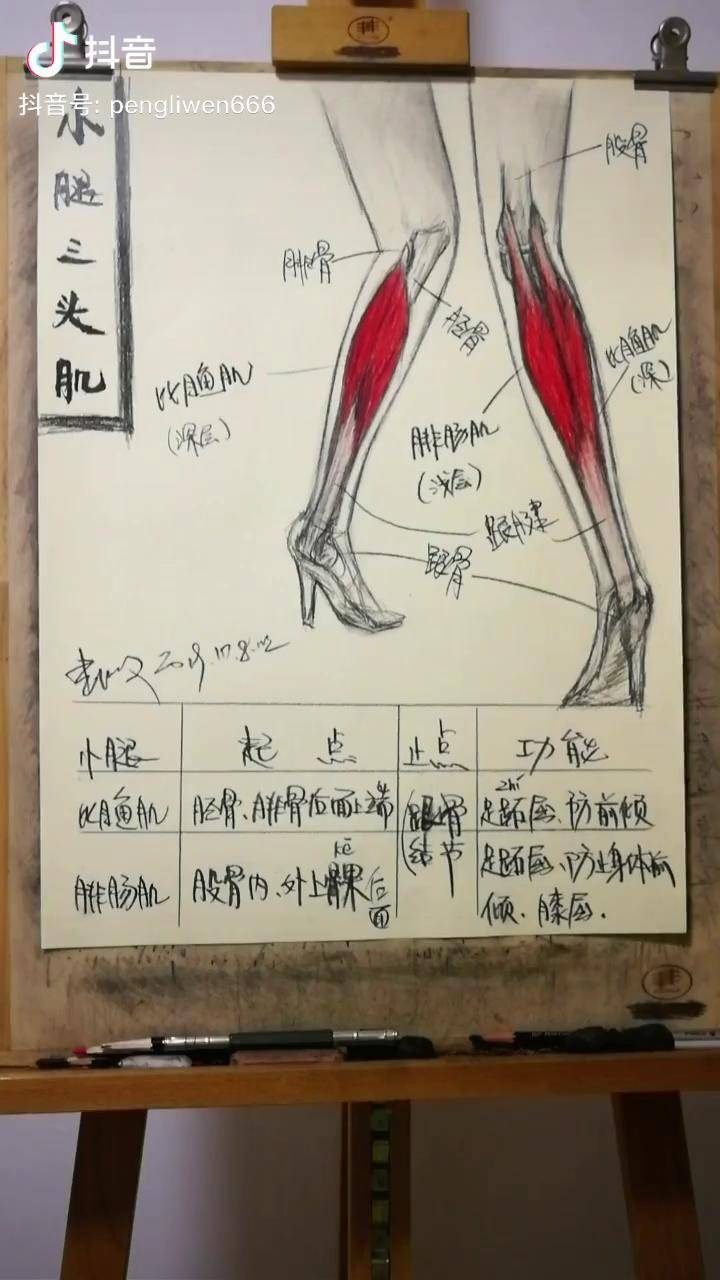 抖音
抖音号: pengliwen666
小腿三头肌
股骨
腓骨
胫骨
比目鱼肌
(深层)
比目鱼肌
(深)
腓肠肌
(浅层)
跟腱
跟骨
小腿 起点 止点 功能
比目鱼肌 胫骨、腓骨后面上端 跟骨结节 足跖屈、防前倾
zhí
腓肠肌 股骨内、外上髁后面 足跖屈、防止身体前倾、膝屈.
kē